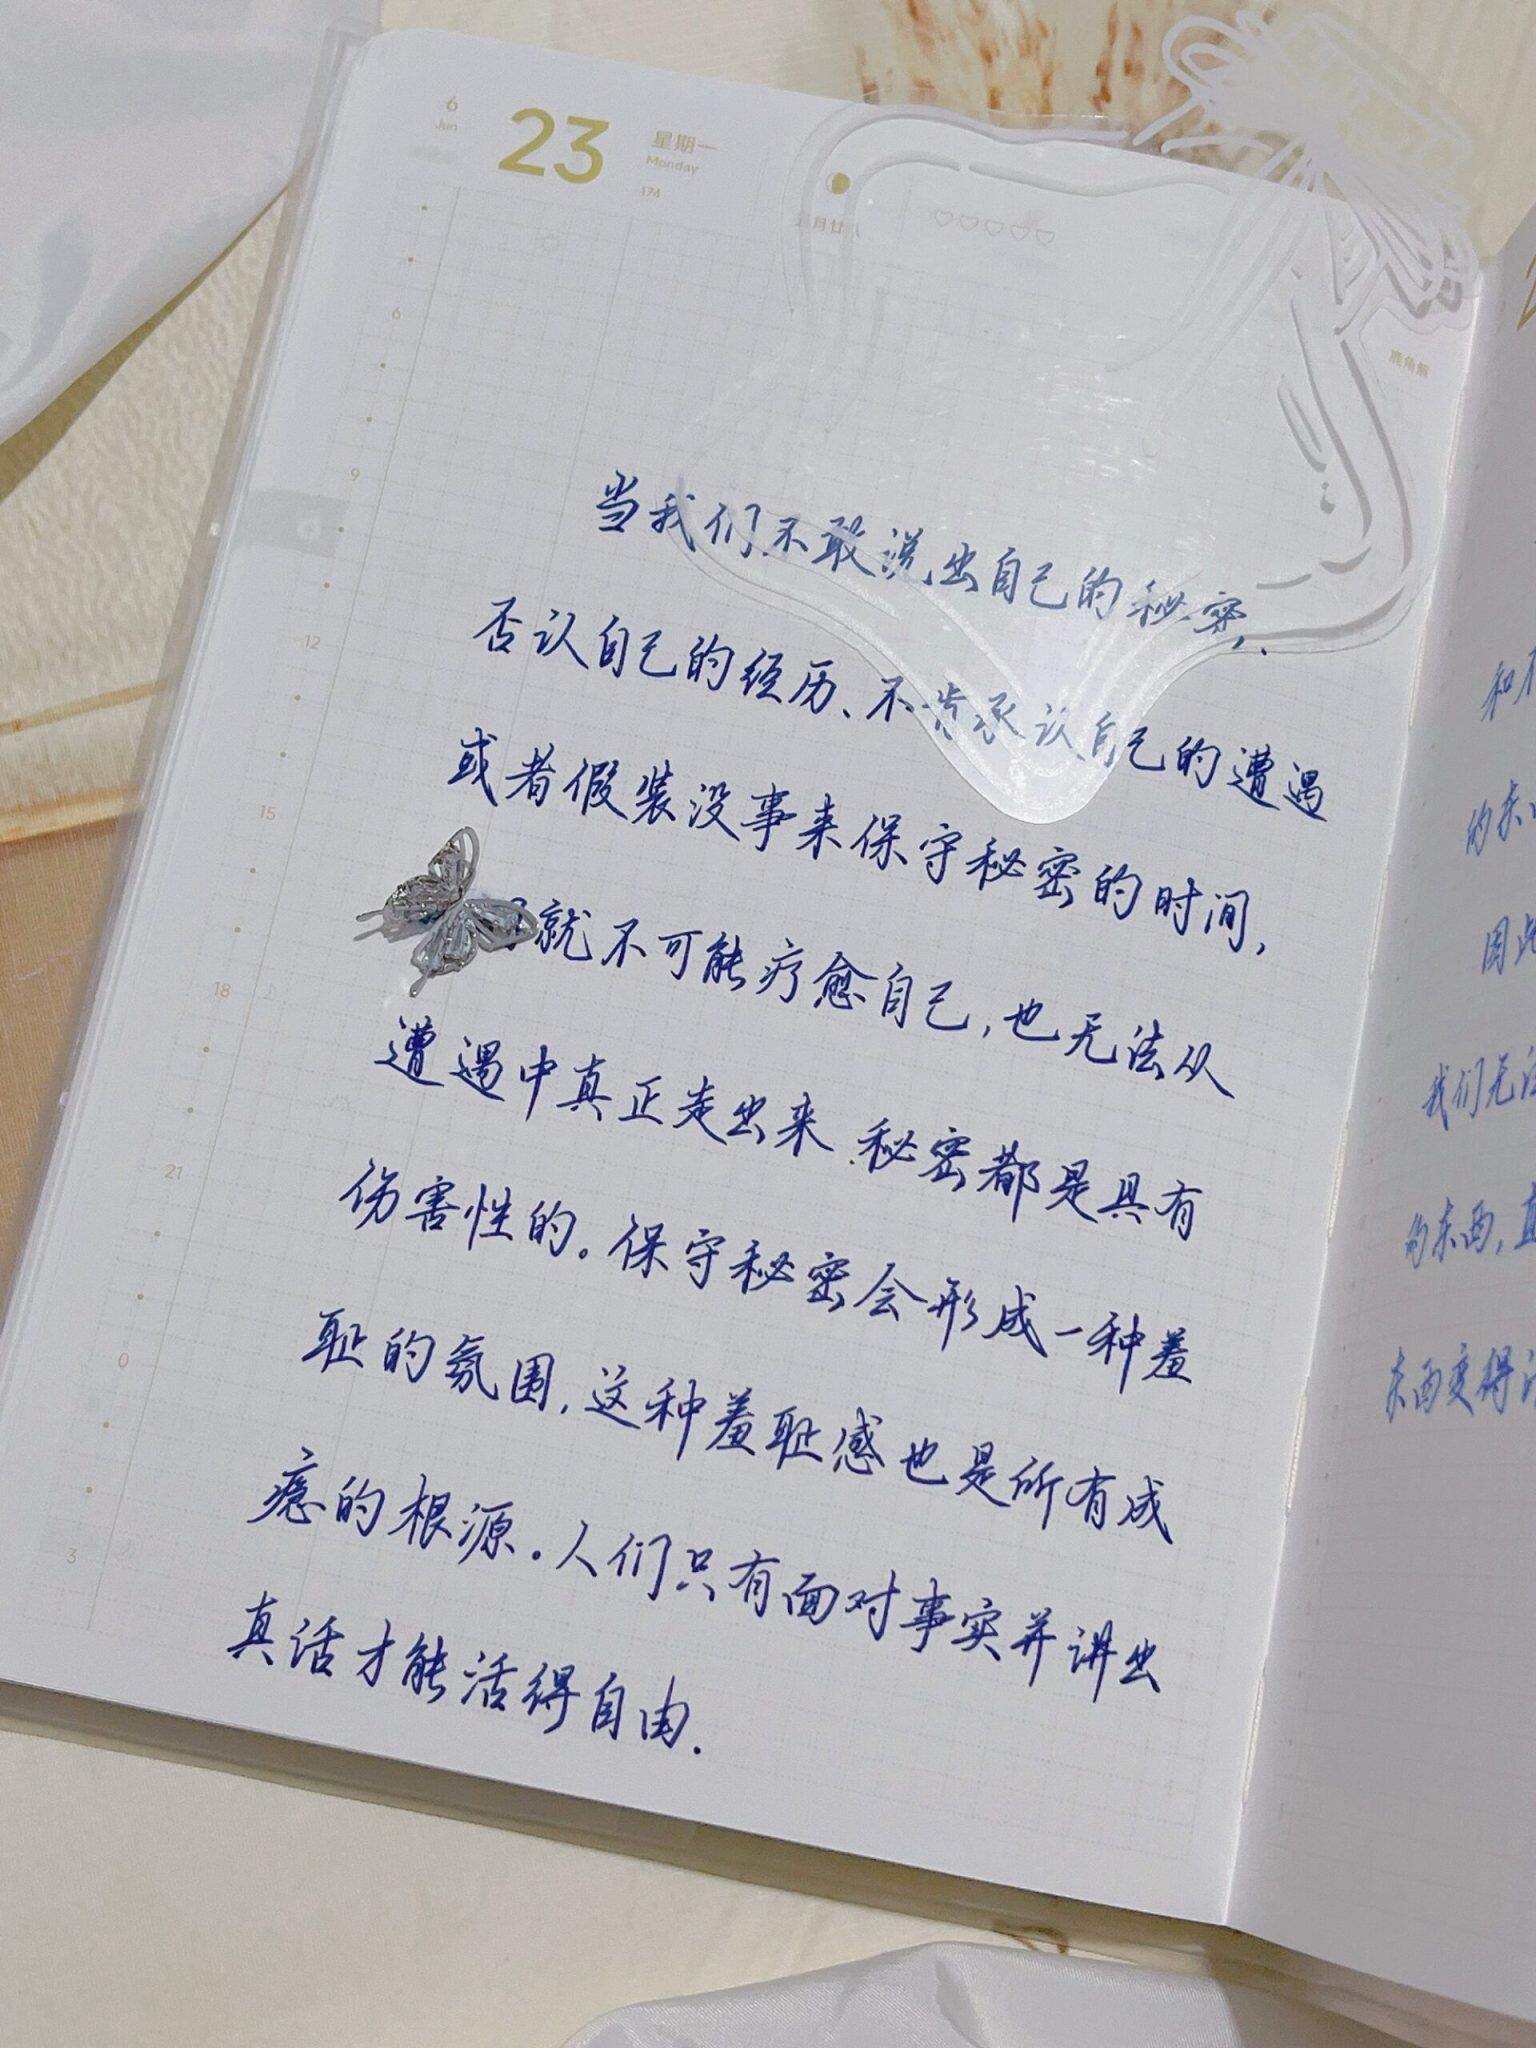 6
Jun
23
星期一
Monday
174
月廿
鹿角熊
6
9
12
15
18
21
0
3
当我们不敢说出自己的秘密、
否认自己的经历、不肯承认自己的遭遇
或者假装没事来保守秘密的时间,
就不可能疗愈自己,也无法从
遭遇中真正走出来.秘密都是具有
伤害性的。保守秘密会形成一种羞
耻的氛围,这种羞耻感也是所有成
瘾的根源。人们只有面对事实并讲出
真话才能活得自由.
和
的东
因此
我们无法
的东西,直
东西变得